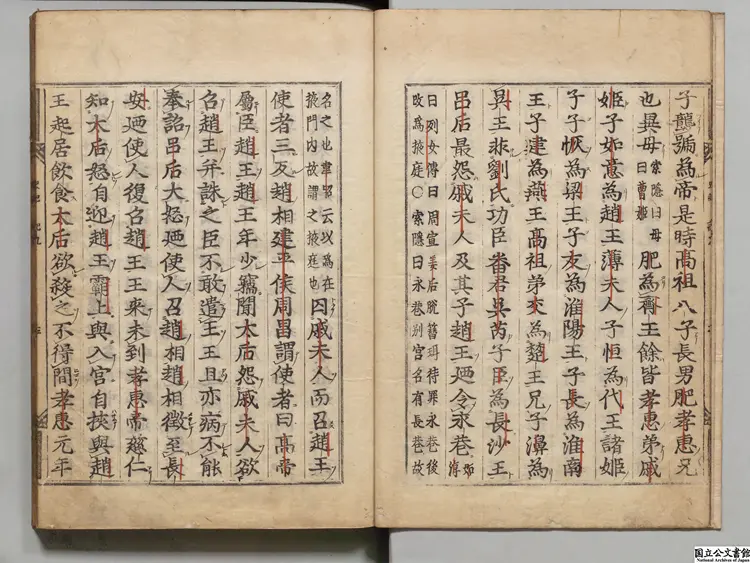 子襲號為帝是時髙祖八子長男肥孝惠兄
也異母索隱曰母曰曹姬肥為齊王餘皆孝惠弟戚
姬子如意為趙王薄夫人子恒為代王諸姬
子子恢為梁王子友為淮陽王子長為淮南
王子建為燕王髙祖弟交為楚王兄子濞為
吳王非劉氏功臣番君吳芮子臣為長沙王
吕后最怨戚夫人及其子趙王廼令永巷如淳
曰列女傳曰周宣姜后脱簪珥待罪永巷後
改為掖庭○索隱曰永巷别宫名有長巷故
名之也韋昭云以為在掖門内故謂之掖庭也囚戚夫人而召趙王
使者三反趙相建平侯周昌謂使者曰髙帝
屬臣趙王趙王年少竊聞太后怨戚夫人欲
召趙王并誅之臣不敢遣王王且亦病不能
奉詔吕后大怒廼使人召趙相趙相徵至長
安廼使人復召趙王王來未到孝惠帝慈仁
知太后怒自迎趙王霸上與入宫自挾與趙
王起居飲食太后欲殺之不得間孝惠元年
国立公文書館
National Archives of Japan